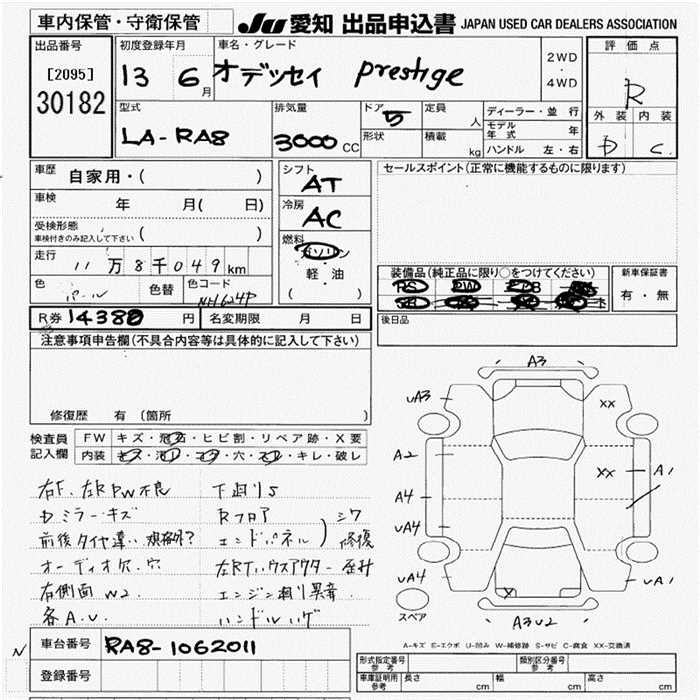 車内保管・守衛保管
JU 愛知 出品申込書 JAPAN USED CAR DEALERS ASSOCIATION
出品番号
[2095]
30182
初度登録年月
13 6 月
車名・グレード
オデッセイ prestige
2WD
・
4WD
評価点
R
外装 内装
D C
型式
LA-RA8
排気量
3000 CC
ドア
5
形状
定員
人
積載
kg
ディーラー・並行
モデル年式 年
ハンドル 左・右
車歴
自家用・( )
車検
年 月( 日)
受検形態
車検付きのみ記入して下さい ( )
走行
11万8千049km
色
パール
色替
色コード
NH624P
シフト
AT
冷房
AC
燃料
ガソリン
軽・油
( )
セールスポイント(正常に機能するものに限ります)
装備品(純正品に限り○をつけてください)
PS PW
新車保証書
有・無
R券 14380 円
名変期限 月 日
後日品
注意事項申告欄(不具合内容等は具体的に記入して下さい)
修復歴 有 (箇所 )
検査員
記入欄
FW キズ・飛石・ヒビ割・リペア跡・X要
内装 キズ・汚レ・コゲ・穴・スレ・キレ・破レ
右F、左R PW不良
Dミラーキズ
前後タイヤ違い 規格外?
オーディオ欠、穴
右側面 W2
各A.U
下廻りS
Rフロア
エンドパネル ) シワ 修復
エンジン廻り異音
ハンドルハゲ
A3
UA3
XX
A2
XX
A1
A4
UA4
UA4
UA1
X
A3U2
スペア
A-キズ E-エクボ U-凹み W-補修跡 S-サビ C-腐食 XX-交換済
N
車台番号 RA8-1062011
登録番号
形式指定番号
参考
類別区分番号
参考
車庫証明用
参考
長さ cm
幅 cm
高さ cm